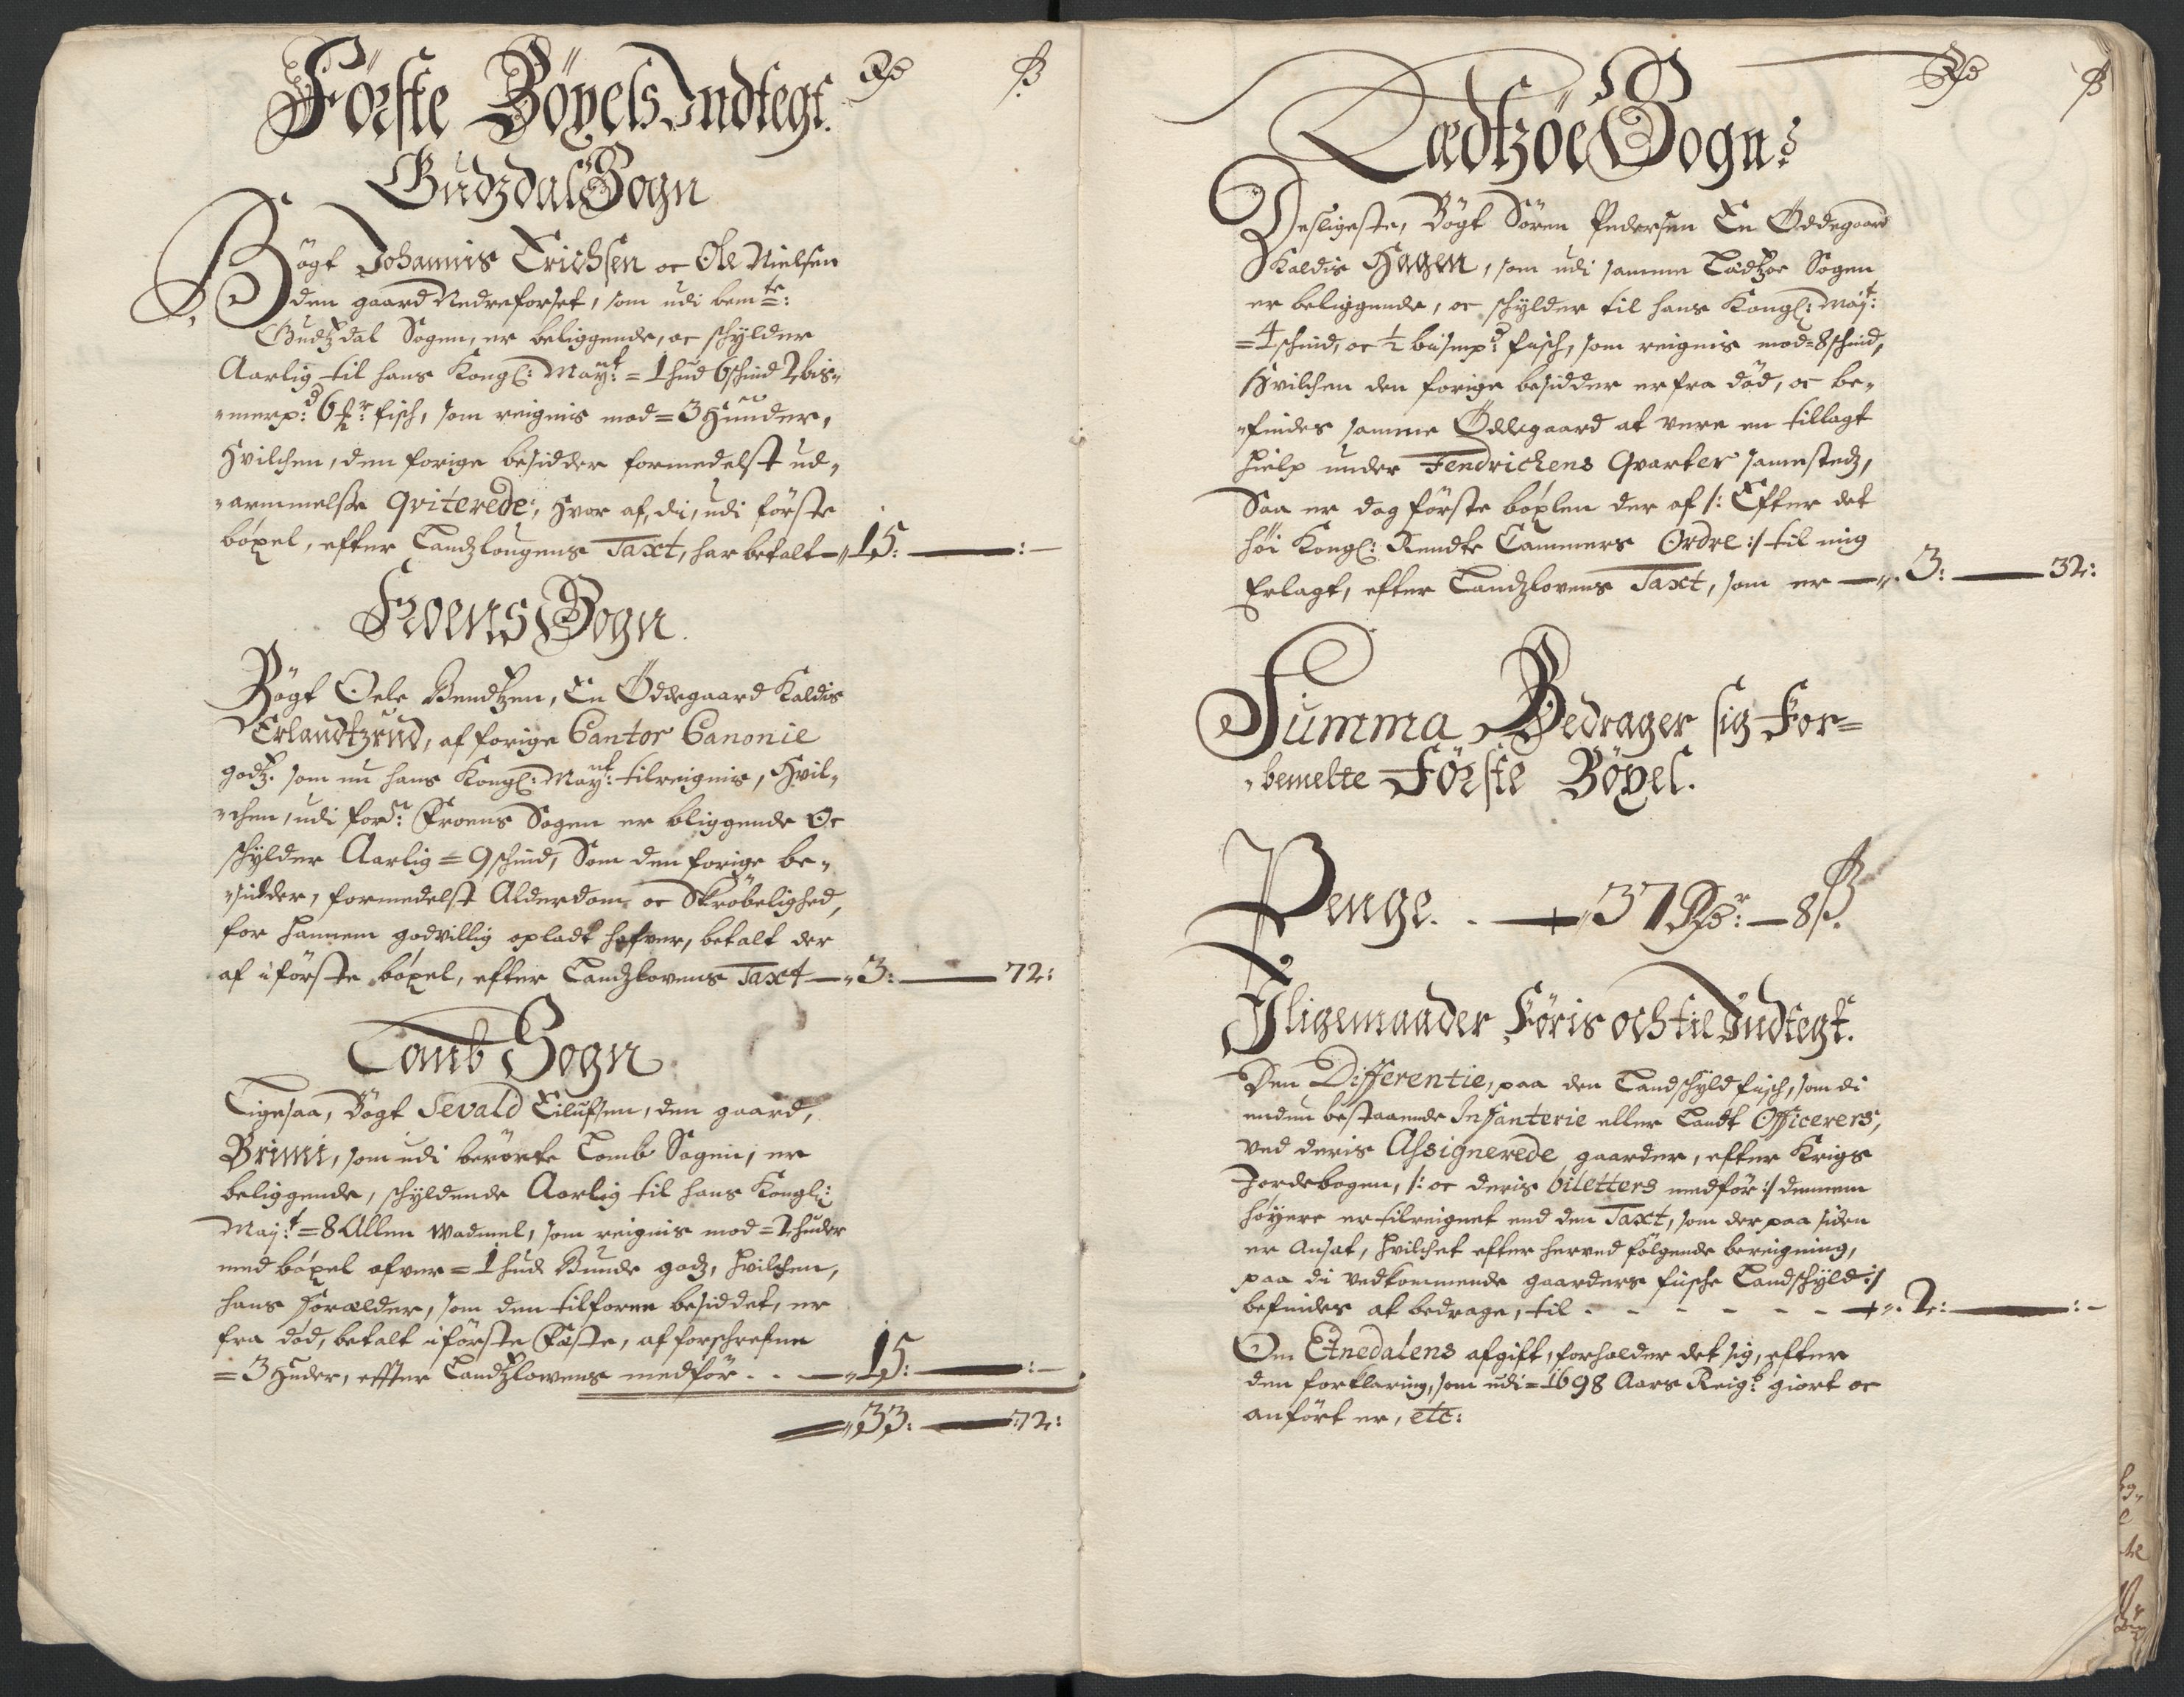 Rd ß
Förste Böxels Indtegt.
Gudzdal Sogn
Bögt Johannis Erichsen oc Ole Nielsen
den gaard Nedreforset, som udi bemte:
Gudtzdal Sogen, er beliggende, oc schylder
Aarlig til hans Kongl: Mayt: = 1 hud 6 schind 2 bis„
„merp:d 6 fisch, som reignis mod = 3 Huuder,
Hvilchen, den forige besidder formedelst ud„
„armmelsse qviterede, hvor af, di, udi förste
böxel, efter Landzlougens Taxt, har betalt —„ 15: — : —
Froens Sogn.
Bögt Oele Bendtzen, En Öddegaard Kaldis
Erlandtzrud, af forige Cantor Canonie
godtz. som nu hans Kongl: Mayt: tilreignis, Hvil„
„chen, udi for:ne Froens Sogen er bliggende Oc
schylder Aarlig = 9 schind, Som den forige be„
„sidder, formedelst Alderdom oc Skröbelighed,
for hannem godvillig opladt hafver, betalt der
af i förste böxel, efter Landzlovens Taxt —„ 3: — 72:
Lomb Sogn
Ligesaa, Bögt Sevald Eilufsen, den gaard,
Brimi, som udi berörte Lomb Sogen, er
beliggende, schyldende Aarlig til hans Kongl:
Mayt: = 8 Allen wadmel, som reignis mod = 2 huder
med böxel ofver = 1 hud Bunde godz, hvilchen,
hans forælder, som den tilforne besiddet, er
fra död, betalt i förste Fæste, af forschrefne
= 3 Huder, effter Landtzlowens medför . . —„ 15: — : —
„ 33: — 72:
Rd ß
Lædtzöe Sogn:
Desligeste, Bögt Sören Pedersen En Öddegaard
Kaldis Hagen, som udi samme Lædtzöe Sogen
er beliggende, oc schylder til hans Kongl: Mayt:
= 4 schind, oc ½ bismp:d fisch, som reignis mod = 8 schind,
Hvilchen den forige besidder er fra död, oc be„
„findes samme Öddegaard at vere en tillagt
hielp under Fendrichens Qvarter sammestedz,
Saa er dog förste böxlen der af /: Efter det
höi Kongl: Rendte Cammers Ordre :/ til mig
Erlagt, efter Landzlovens Taxt, som er —„. 3: — 32:
Summa Bedrager sig For=
„bemelte Förste Böxel.
Penge. . —„ 37 Rdr: — 8 ß.
Jligemaader Föris och til Indtegt.
Den Differentie, paa den Landschyld fisch, som di
endnu bestaaende Infanterie eller Landt Officerers,
ved deris Assignerede gaarder, efter Krigs
Jordebogen, /: oc deris biletters medför :/ dennem
höyere er tilreignet end den Taxt, som der paa siden
er Ansat, hvilchet efter herved fölgende bereigning,
paa di vedkommende gaarders fische Landschyld :/
befindes at bedrage, til . - - - - - - —„. 2: — : —
Om Etnedalens afgift, forholder det sig, efter
den forklaring, som udi = 1698 Aars Reig: giort oc
anfört er, etc: